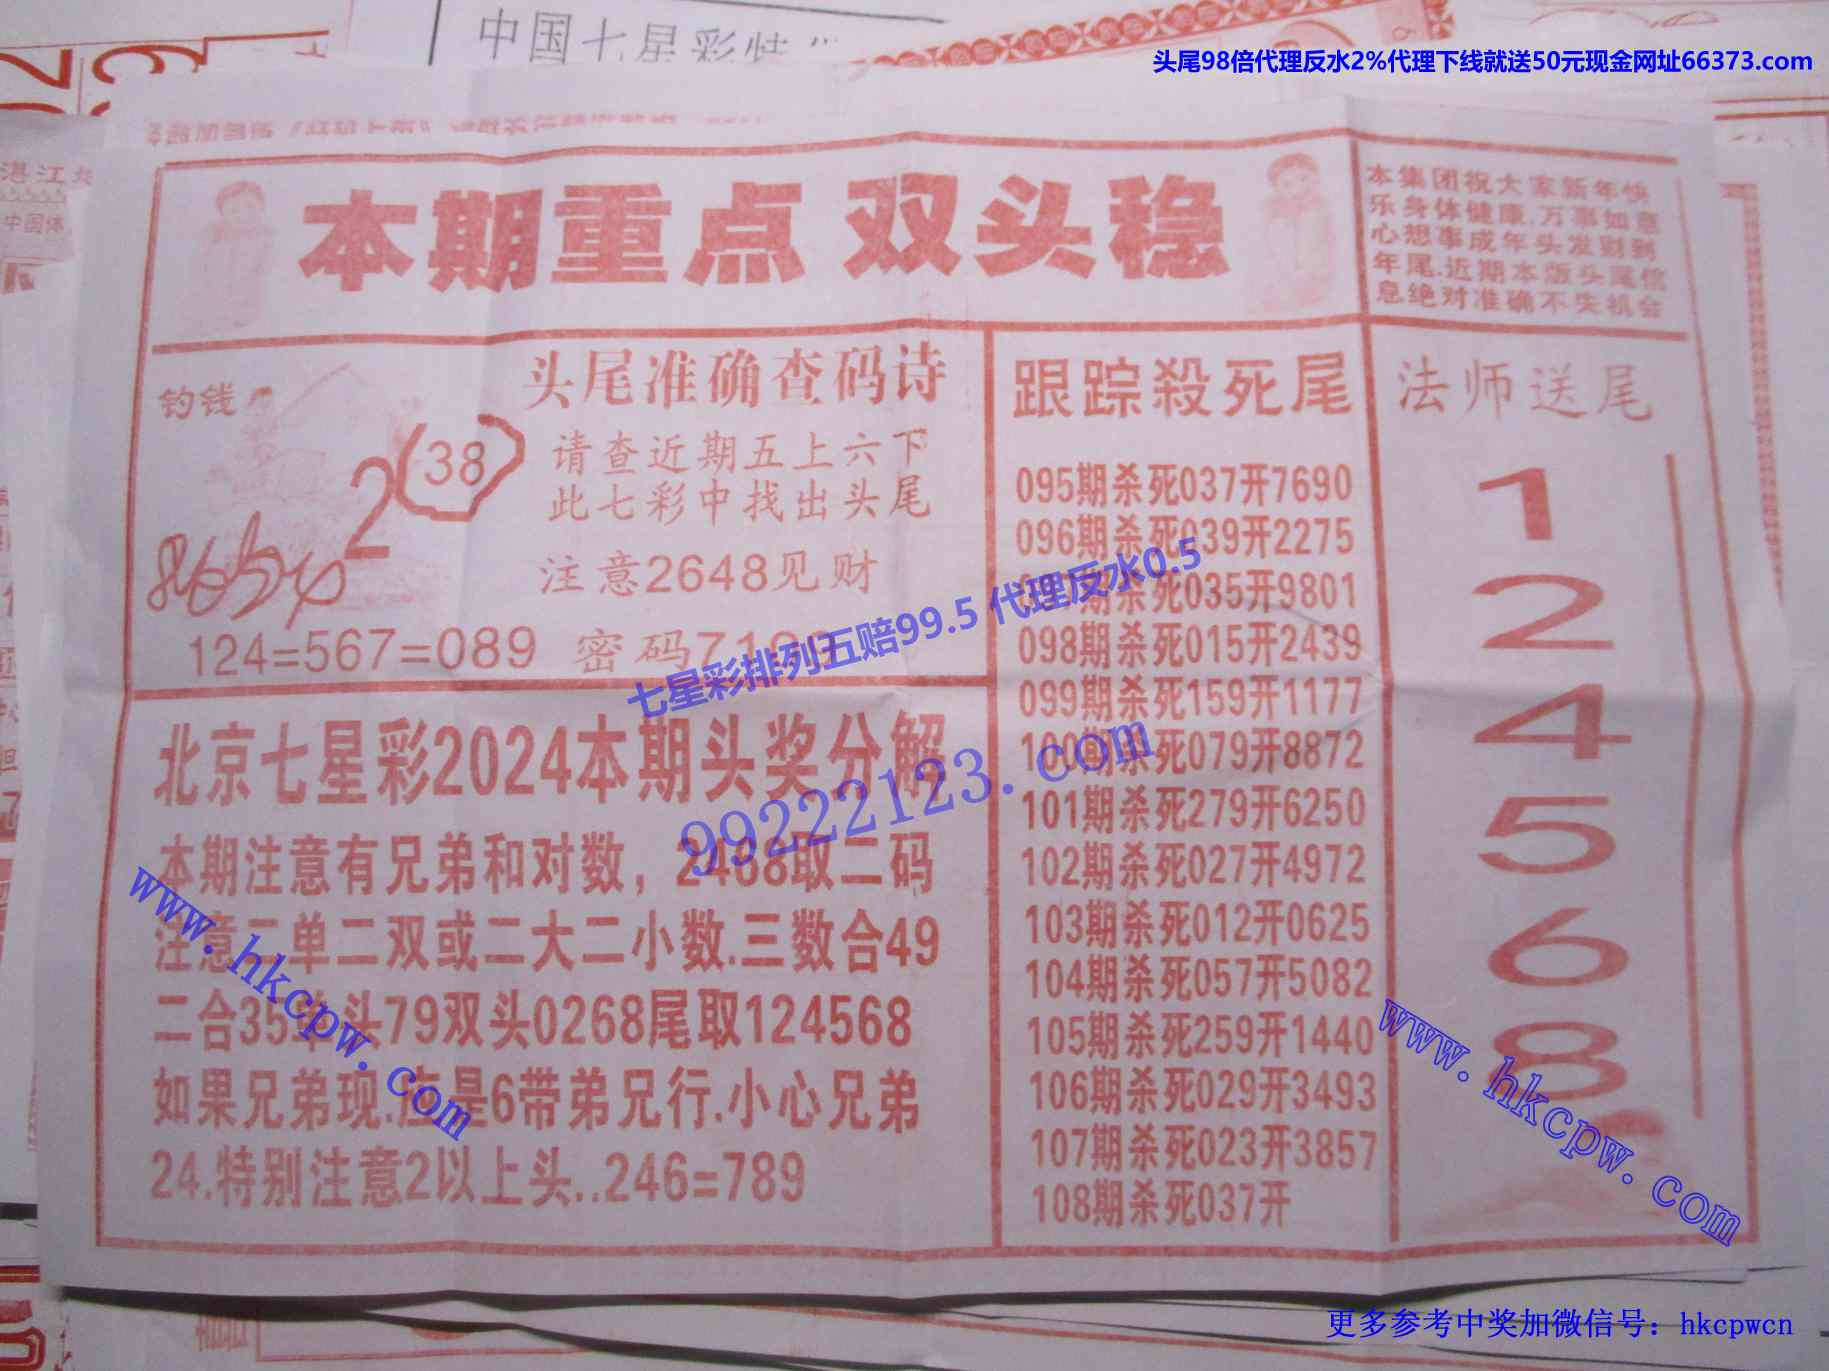 中国七星彩
头尾98倍代理反水2%代理下线就送50元现金网址66373.com
湛江
中国体
本期重点 双头稳
本集团祝大家新年快
乐身体健康.万事如意
心想事成年头发财到
年尾.近期本版头尾信
息绝对准确不失机会
钓钱
2
(38)
头尾准确查码诗
请查近期五上六下
此七彩中找出头尾
注意2648见财
124=567=089 密码71
跟踪殺死尾
095期杀死037开7690
096期杀死039开2275
期杀死035开9801
098期杀死015开2439
099期杀死159开1177
100期杀死079开8872
101期杀死279开6250
102期杀死027开4972
103期杀死012开0625
104期杀死057开5082
105期杀死259开1440
106期杀死029开3493
107期杀死023开3857
108期杀死037开
法师送尾
1
2
4
5
6
8
七星彩排列五赔99.5 代理反水0.5
99222123.com
北京七星彩2024本期头奖分解
本期注意有兄弟和对数，2468取二码
注意二单二双或二大二小数.三数合49
二合35单头79双头0268尾取124568
如果兄弟现.应是6带弟兄行.小心兄弟
24.特别注意2以上头..246=789
www.hkcpw.com
www.hkcpw.com
更多参考中奖加微信号：hkcpwcn